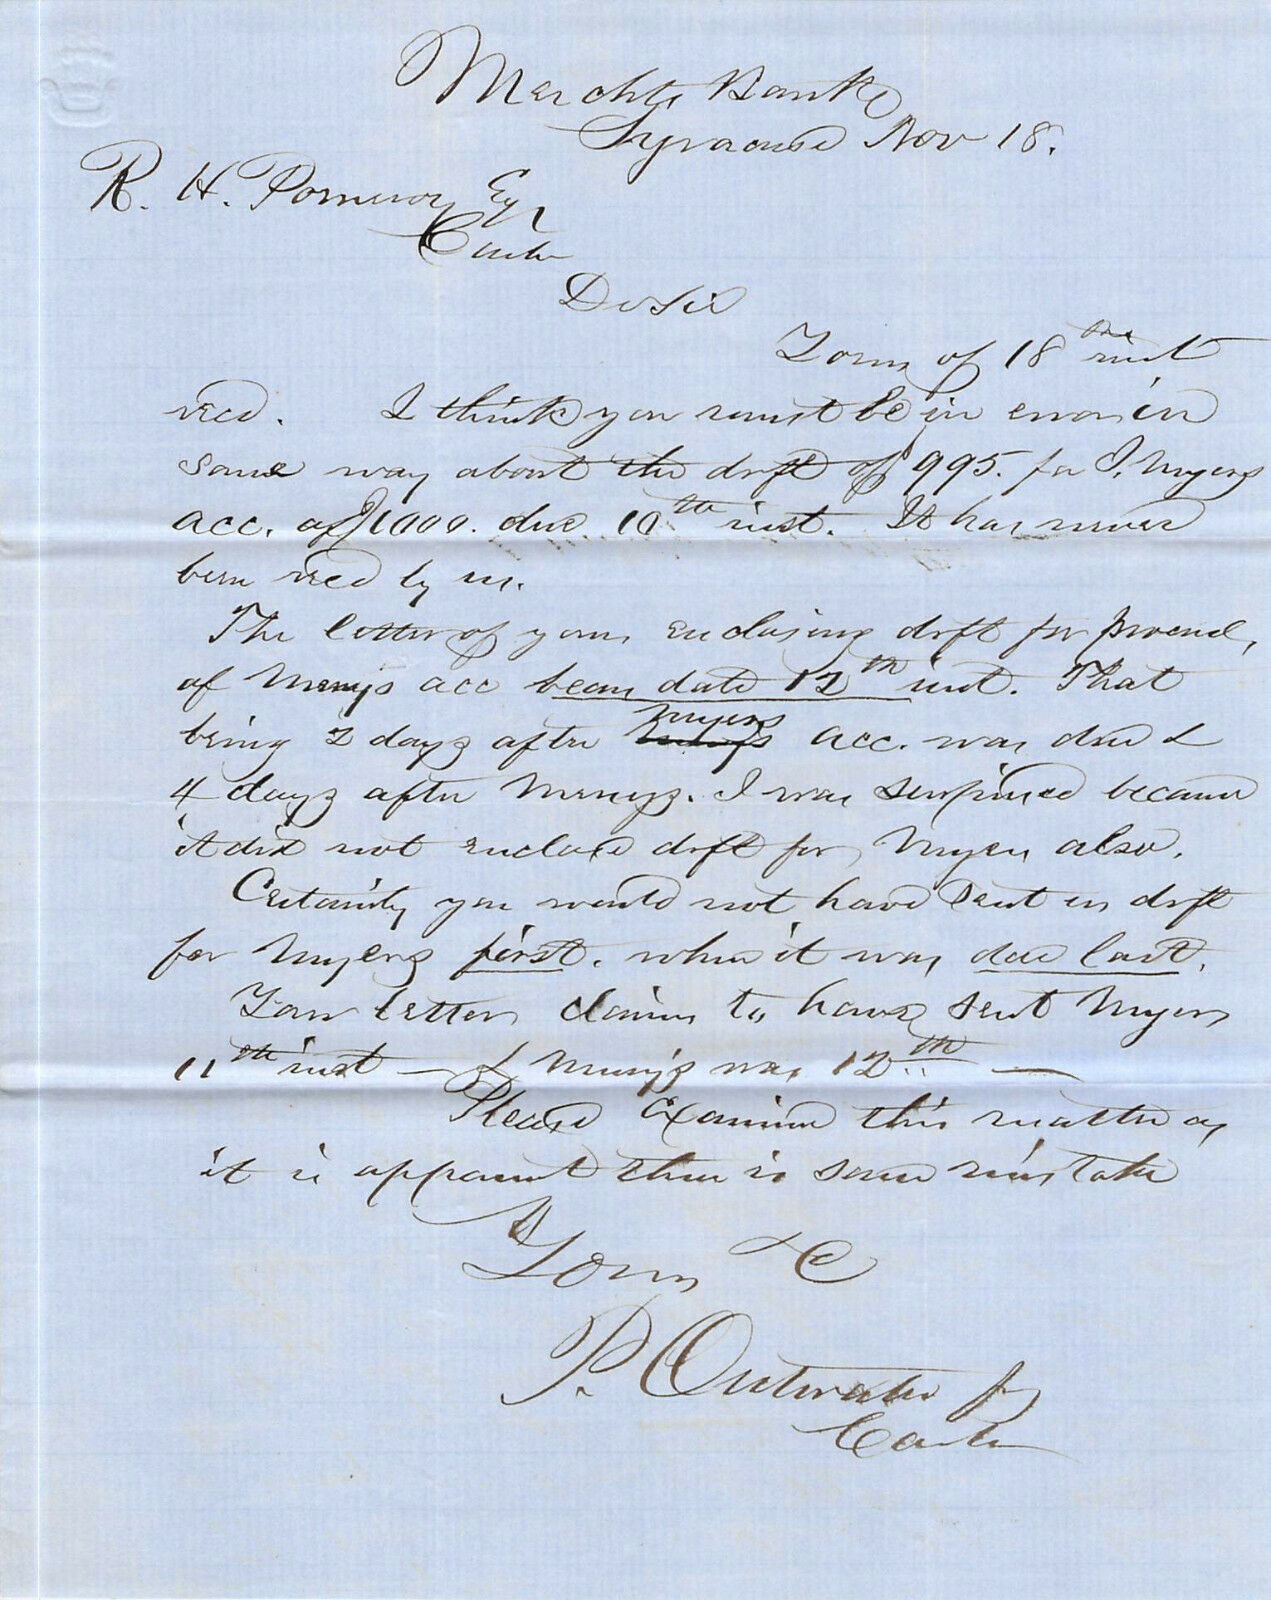 Merchts Bank
Syracuse Nov 18.
R. H. Pomeroy Esq
Cash
Dr Sir
Yours of 18th inst
recd. I think you must be in error in
some way about the drft of 995. for J. Myers
acc. of $1000. due 10th inst. It has never
been recd by us.
The letter of yours enclosing drft for proceeds
of Merrys acc bears date 12th inst. That
being 2 days after Myers acc. was due &
4 days after Merrys. I was surprised because
it did not enclose drft for Myers also.
Certainly you would not have sent us drft
for Myers first. when it was due last.
Your letter claims to have sent Myers
11th inst — & Merrys was 12th —
Please Examine this matter as
it is apparent there is some mistake
Yours &C
P. Outwater Jr
Cash